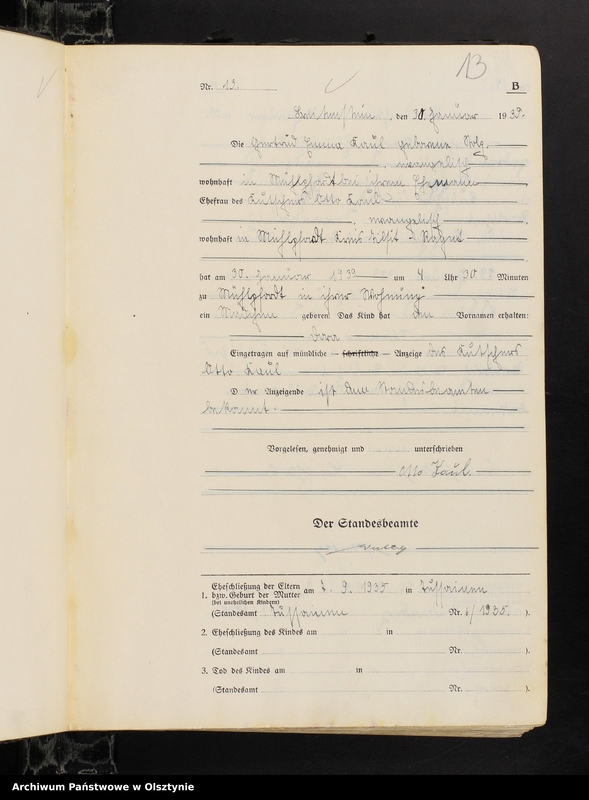 13
Nr. 13.
B
Breitenstein, den 30. Januar 1939.
Die Gertrud Emma Kaul geborene
, evangelisch
wohnhaft in Mühlpfordt bei ihrem Ehemann
Ehefrau des Kutschers Otto Kaul
, evangelisch
wohnhaft in Mühlpfordt Kreis Tilsit-Ragnit
hat am 30. Januar 1939 um 4 Uhr 30 Minuten
zu Mühlpfordt in ihrer Wohnung
ein Mädchen geboren. Das Kind hat den Vornamen erhalten:
Eingetragen auf mündliche — schriftliche — Anzeige des Kutschers
Otto Kaul
D er Anzeigende ist dem Standesbeamten
bekannt.
Vorgelesen, genehmigt und unterschrieben
Otto Kaul.
Der Standesbeamte
Eheschließung der Eltern
1. bzw. Geburt der Mutter am 9. 1935 in
(bei unehelichen Kindern)
(Standesamt Nr. /1935.).
2. Eheschließung des Kindes am in
(Standesamt Nr. ).
3. Tod des Kindes am in
(Standesamt Nr. ).
Archiwum Państwowe w Olsztynie